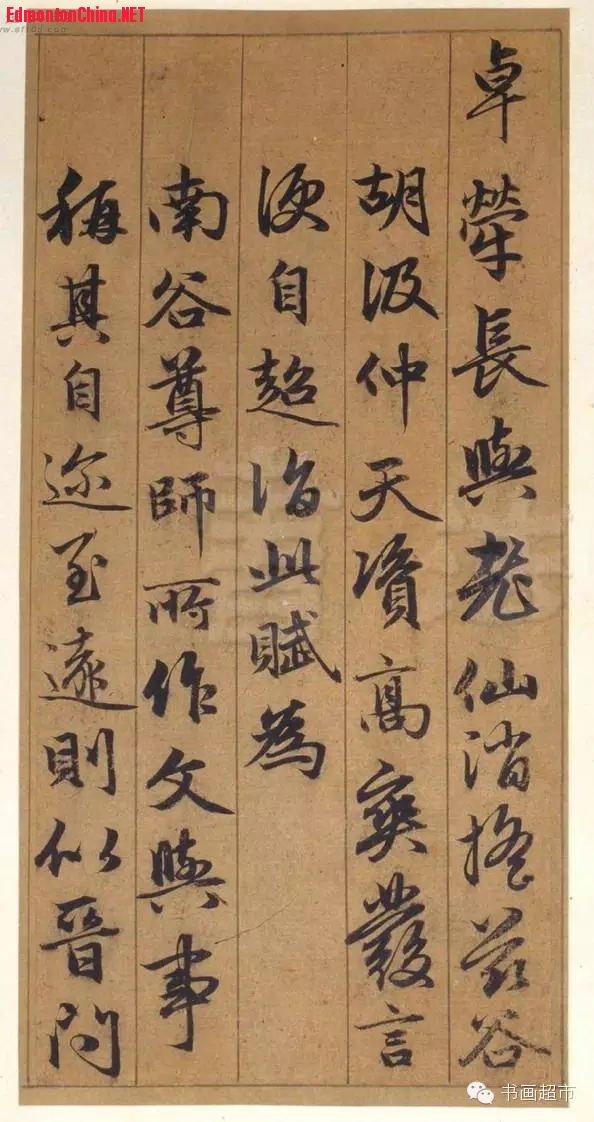 EdmontonChina.NET
卓犖長與老仙消搖茲谷
胡汲仲天資高爽發言
便自超詣此賦為
南谷尊師所作文與事
稱其自迩至遠則似晉問
书画超市